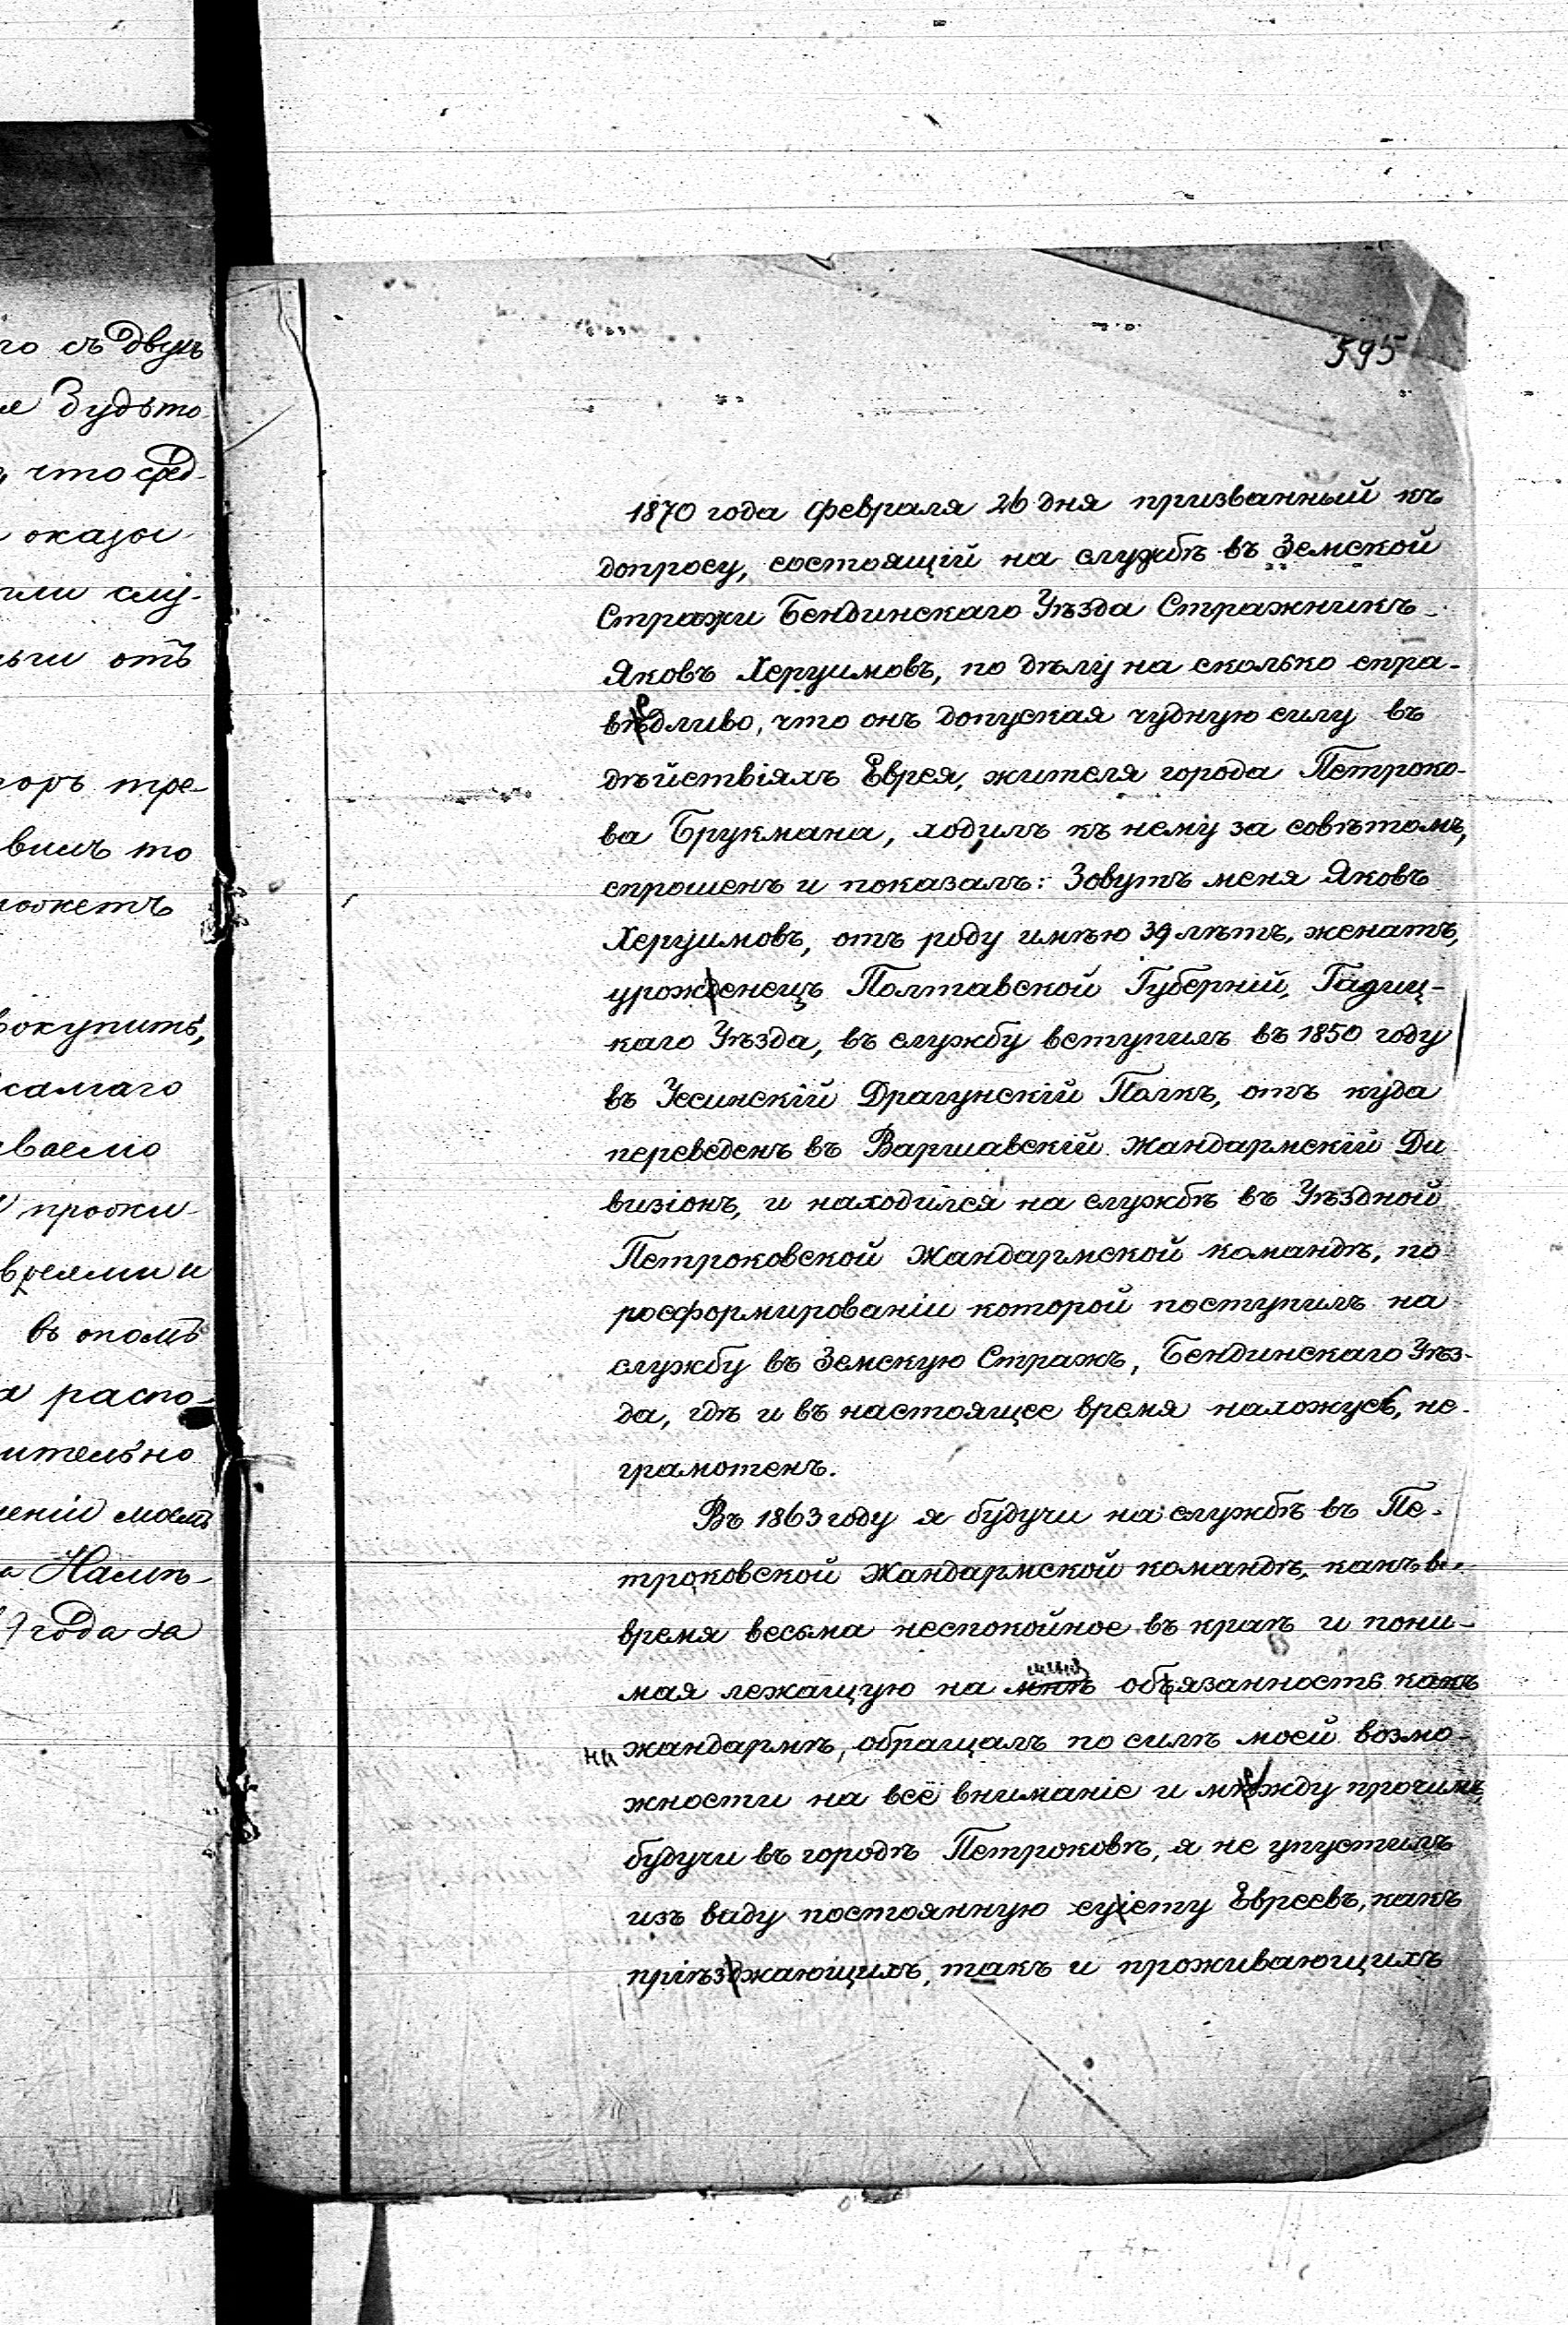 го съ двухъ
я Будьто
, что сред-
оказы-
или слу-
ьги отъ
горъ тре-
вить то
можетъ
вокупить,
самаго
ваемо
прожи-
времени
въ опомъ
а распо-
ительно
ченіи моемъ
Намѣ-
года за
595
1870 года февраля 26 дня призванный къ
допросу, состоящій на службѣ въ Земской
Стражи Бендинскаго Уѣзда Стражникъ
Яковъ Херуимовъ, по дѣлу на сколько спра-
ведливо, что онъ допуская чудную силу въ
дѣйствіяхъ Еврея, жителя города Петроко-
ва Брукмана, ходилъ къ нему за совѣтомъ,
спрошенъ и показалъ: Зовутъ меня Яковъ
Херуимовъ, отъ роду имѣю 39 лѣтъ, женатъ,
урожденецъ Полтавской Губерніи, Гадяц-
каго Уѣзда, въ службу вступилъ въ 1850 году
въ Драгунскій Полкъ, отъ куда
переведенъ въ Варшавскій Жандармскій Ди
визіонъ, и находился на службѣ въ Уѣздной
Петроковской Жандармской командѣ, по
росформированіи которой поступилъ на
службу въ Земскую Стражъ, Бендинскаго Уѣз-
да, гдѣ и въ настоящее время нахожусь, не-
грамотенъ.
Въ 1863 году я будучи на службѣ въ Пе-
троковской Жандармской командѣ, какъ въ
время весьма неспокойное въ краѣ и пони-
мая лежащую на мнѣ обязанность какъ
на жандармѣ, обращалъ по силѣ моей возмо-
жности на всё вниманіе и между прочимъ
будучи въ городѣ Петроковѣ, я не упустилъ
изъ виду постоянную суіету Евреевъ, какъ
пріѣзджающихъ, такъ и проживающихъ